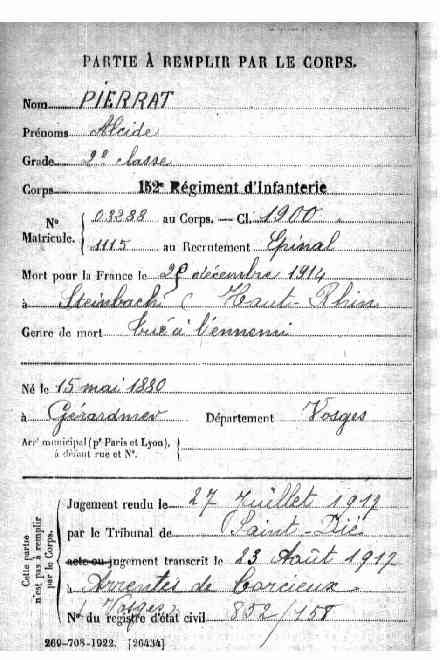 PARTIE À REMPLIR PAR LE CORPS.
Nom PIERRAT
Prénoms Alcide
Grade 2e classe
Corps 152e Régiment d'Infanterie
No Matricule. { 03288 au Corps. — Cl. 1900
1115 au Recrutement Epinal
Mort pour la France le 28 décembre 1914
à Steinbach ( Haut-Rhin
Genre de mort tué à l'ennemi
Né le 15 mai 1880
à Gérardmer Département Vosges
Arrt municipal (pr Paris et Lyon), à défaut rue et No. {
Cette partie n'est pas à remplir par le Corps.
Jugement rendu le 27 Juillet 1917
par le Tribunal de Saint-Dié
acte ou jugement transcrit le 23 Août 1917
à Arrentès de Corcieux
(Vosges)
No du registre d'état civil 852/158
269-708-1922. [26434]